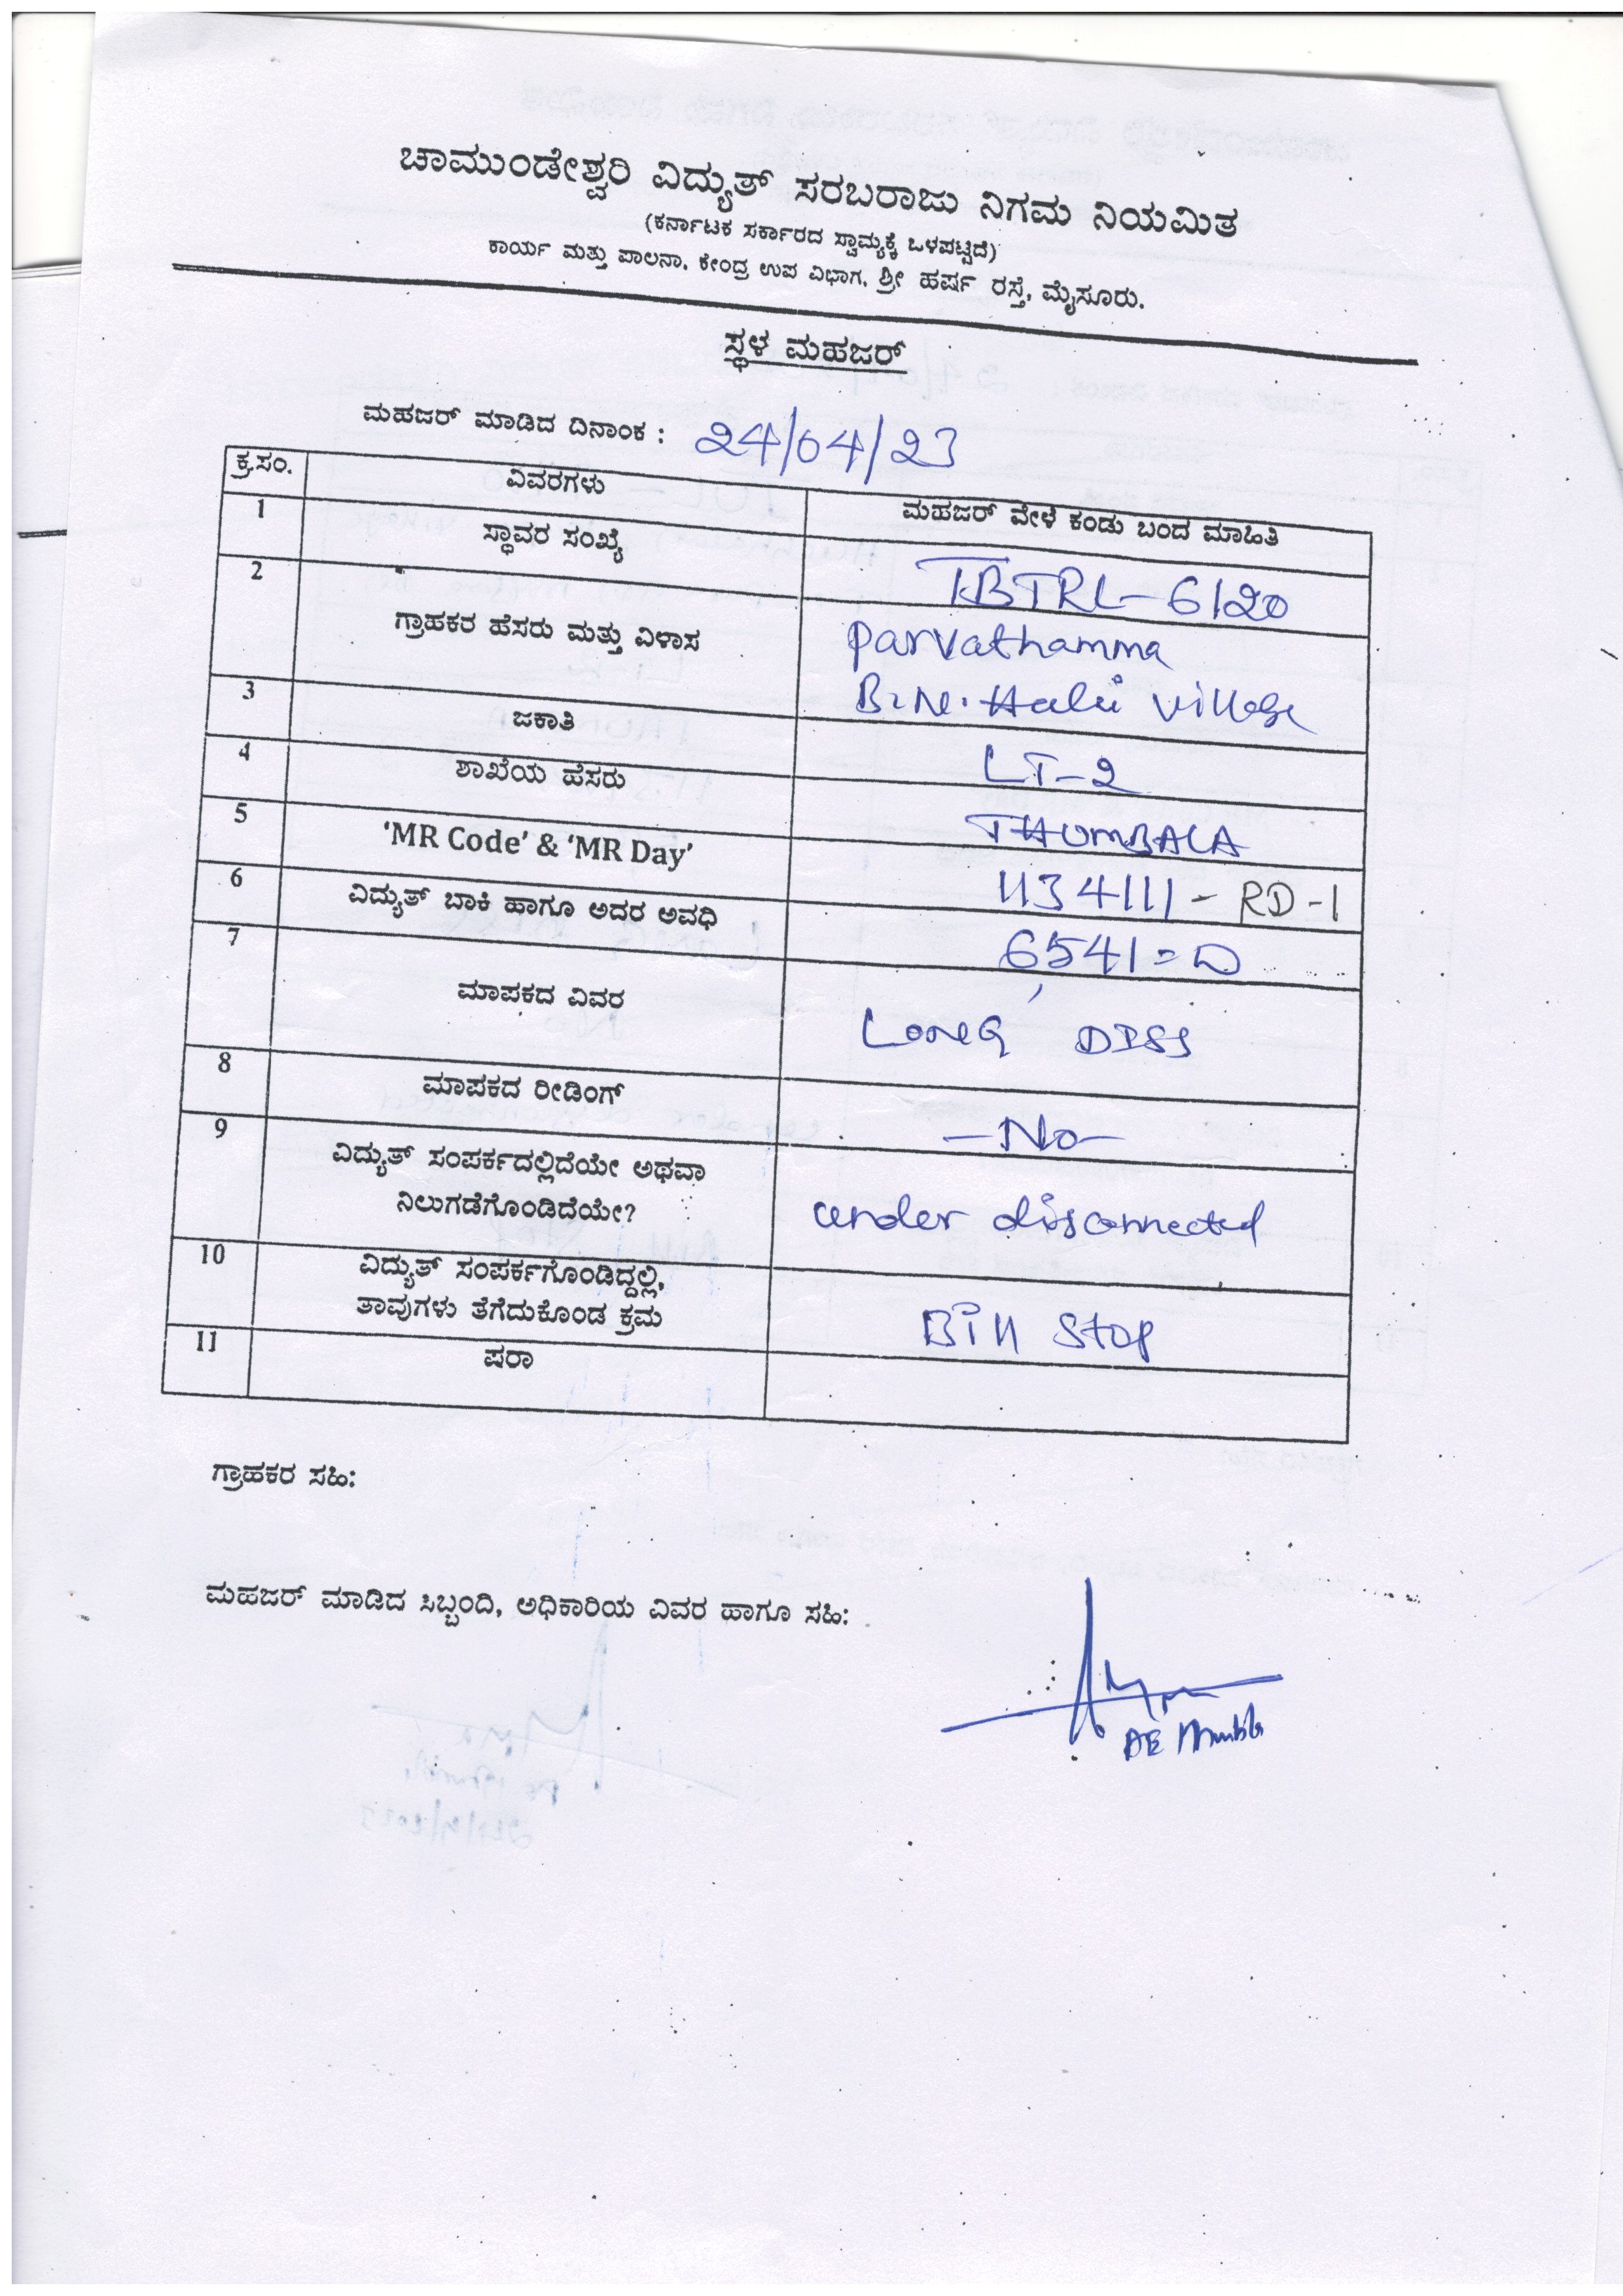 ಚಾಮುಂಡೇಶ್ವರಿ ವಿದ್ಯುತ್ ಸರಬರಾಜು ನಿಗಮ ನಿಯಮಿತ
(ಕರ್ನಾಟಕ ಸರ್ಕಾರದ ಸ್ವಾಮ್ಯಕ್ಕೆ ಒಳಪಟ್ಟಿದೆ)
ಕಾರ್ಯ ಮತ್ತು ಪಾಲನಾ, ಕೇಂದ್ರ ಉಪ ವಿಭಾಗ, ಶ್ರೀ ಹರ್ಷ ರಸ್ತೆ, ಮೈಸೂರು.
ಸ್ಥಳ ಮಹಜರ್
ಮಹಜರ್ ಮಾಡಿದ ದಿನಾಂಕ : 24/04/23
ಕ್ರ.ಸಂ. ವಿವರಗಳು ಮಹಜರ್ ವೇಳೆ ಕಂಡು ಬಂದ ಮಾಹಿತಿ
1 ಸ್ಥಾವರ ಸಂಖ್ಯೆ TBTRL-6120
2 ಗ್ರಾಹಕರ ಹೆಸರು ಮತ್ತು ವಿಳಾಸ Parvathamma
Village
3 ಜಕಾತಿ LT-2
4 ಶಾಖೆಯ ಹೆಸರು THUMBALA
5 'MR Code' & 'MR Day' 1134111 - RD-1
6 ವಿದ್ಯುತ್ ಬಾಕಿ ಹಾಗೂ ಅದರ ಅವಧಿ 6541=
7 ಮಾಪಕದ ವಿವರ Long
8 ಮಾಪಕದ ರೀಡಿಂಗ್ -No-
9 ವಿದ್ಯುತ್ ಸಂಪರ್ಕದಲ್ಲಿದೆಯೇ ಅಥವಾ
ನಿಲುಗಡೆಗೊಂಡಿದೆಯೇ? under disconnected
10 ವಿದ್ಯುತ್ ಸಂಪರ್ಕಗೊಂಡಿದ್ದಲ್ಲಿ,
ತಾವುಗಳು ತೆಗೆದುಕೊಂಡ ಕ್ರಮ Bill Stop
11 ಷರಾ
ಗ್ರಾಹಕರ ಸಹಿ:
ಮಹಜರ್ ಮಾಡಿದ ಸಿಬ್ಬಂದಿ, ಅಧಿಕಾರಿಯ ವಿವರ ಹಾಗೂ ಸಹಿ:
AE